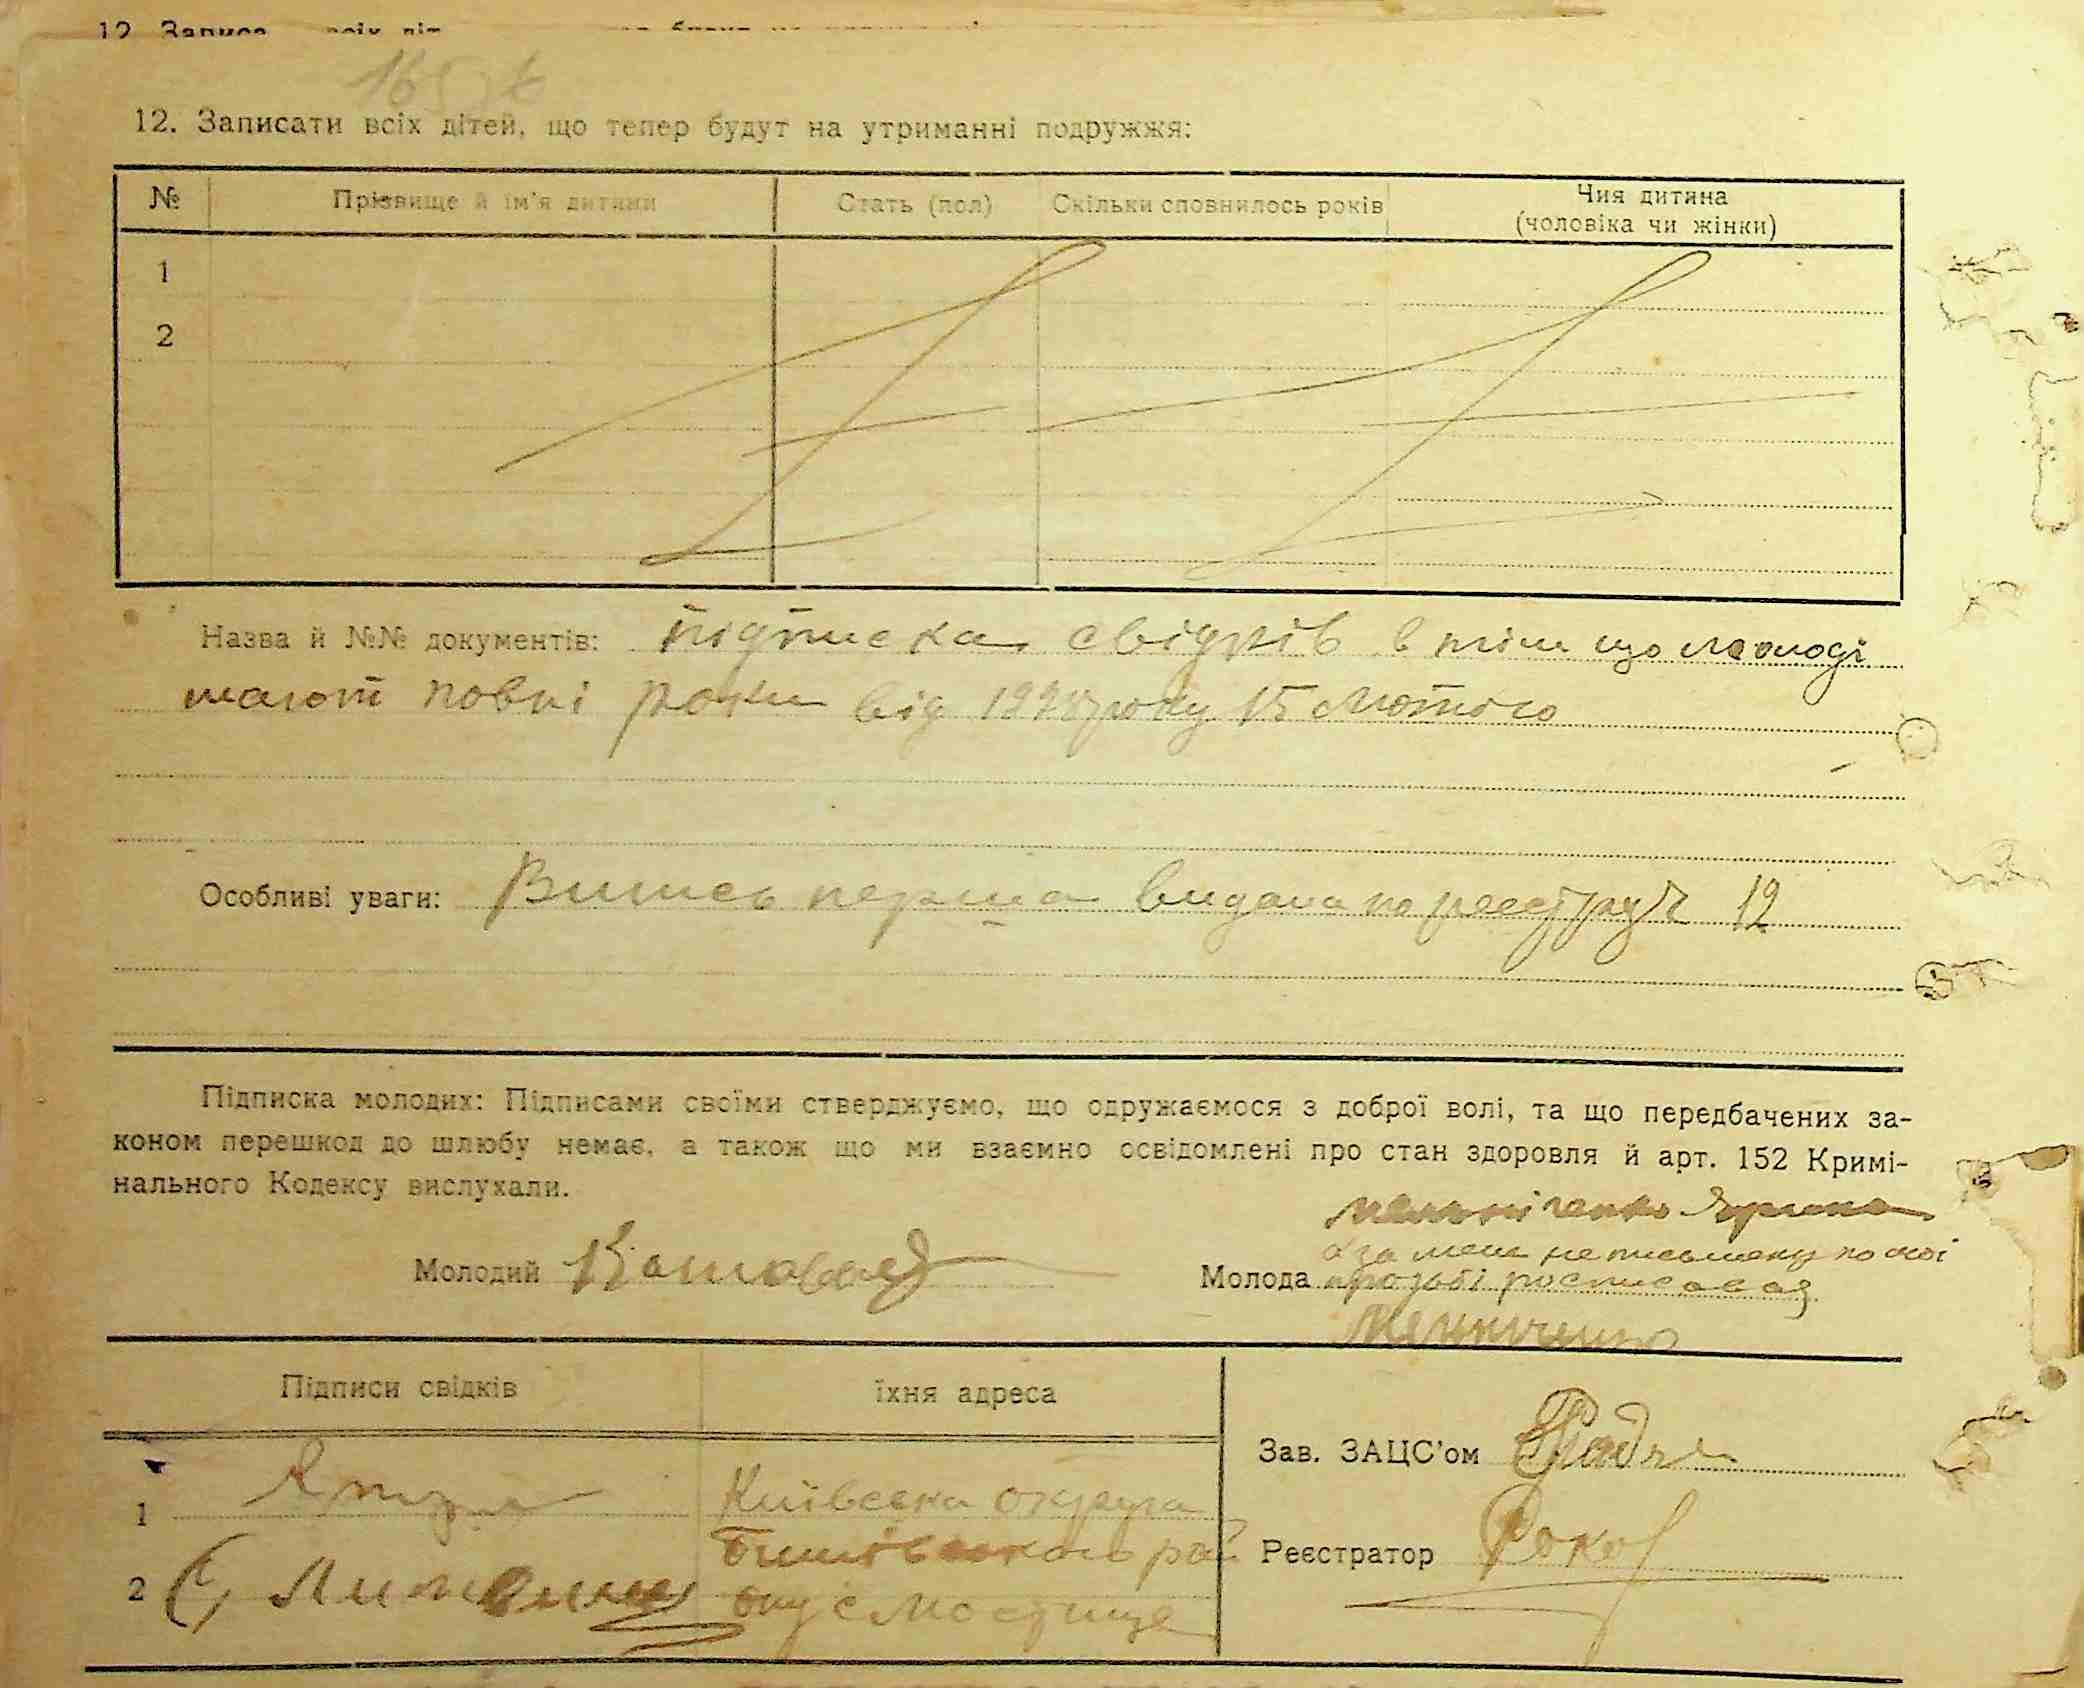 12. Записати всіх дітей, що тепер будут на утриманні подружжя:
№ Прізвище й ім'я дитини Стать (пол) Скільки сповнилось років Чия дитина
(чоловіка чи жінки)
1
2
Назва й №№ документів: підписка свідків в тім що молоді
мають повні роки від року 15 Лютого
Особливі уваги: Випись перша видана по реєстру № 12
Підписка молодих: Підписами своїми стверджуємо, що одружаємося з доброї волі, та що передбачених за-
коном перешкод до шлюбу немає, а також що ми взаємно освідомлені про стан здоровля й арт. 152 Кримі-
нального Кодексу вислухали.
Ярина
а за мене не письмену по моі
Молодий
Молода прозьбі росписавая
Підписи свідків їхня адреса
Зав. ЗАЦС'ом
1 Київська округа
Реєстратор
2 с Мостище